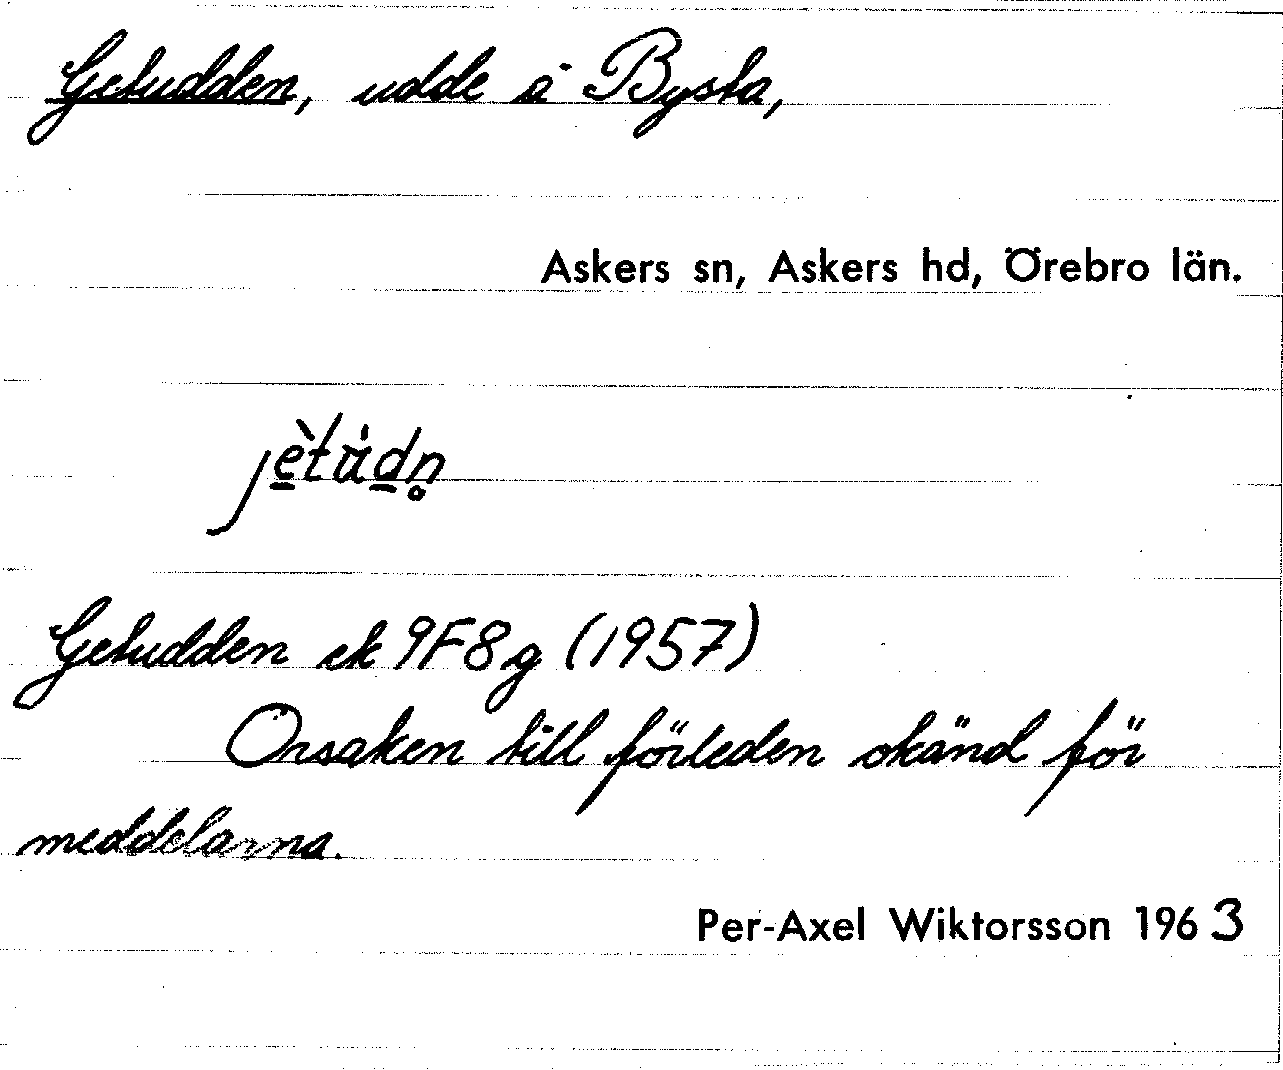 Getudden, udde å Bysta,
Askers sn, Askers hd, Örebro län.
jètu̇dn̥
Getudden ek 9F8g (1957)
Orsaken till förleden okänd för
meddelarna.
Per-Axel Wiktorsson 1963